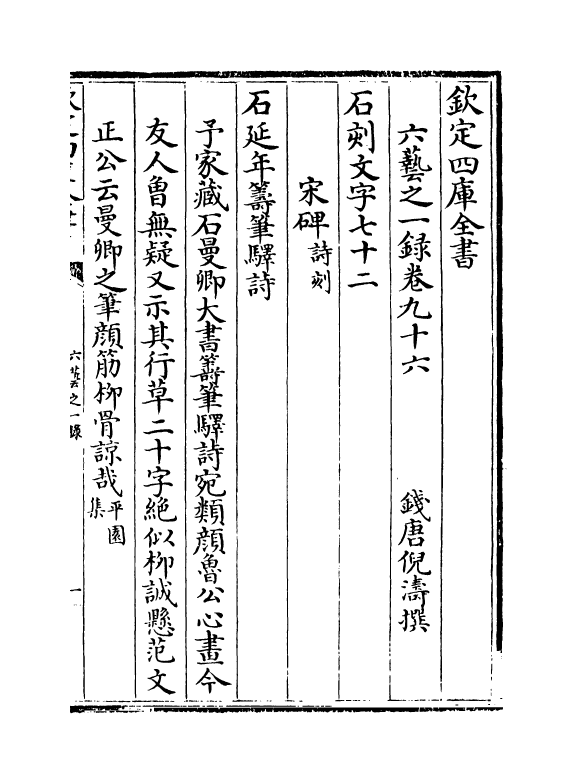 欽定四庫全書
六藝之一錄卷九十六
錢唐倪濤撰
石刻文字七十二
宋碑詩刻
石延年籌筆驛詩
予家藏石曼卿大書籌筆驛詩宛類顔魯公心畫今
友人魯無疑又示其行草二十字絶似柳誠懸范文
正公云曼卿之筆顔筋柳骨諒哉平園集
六藝之一錄
一